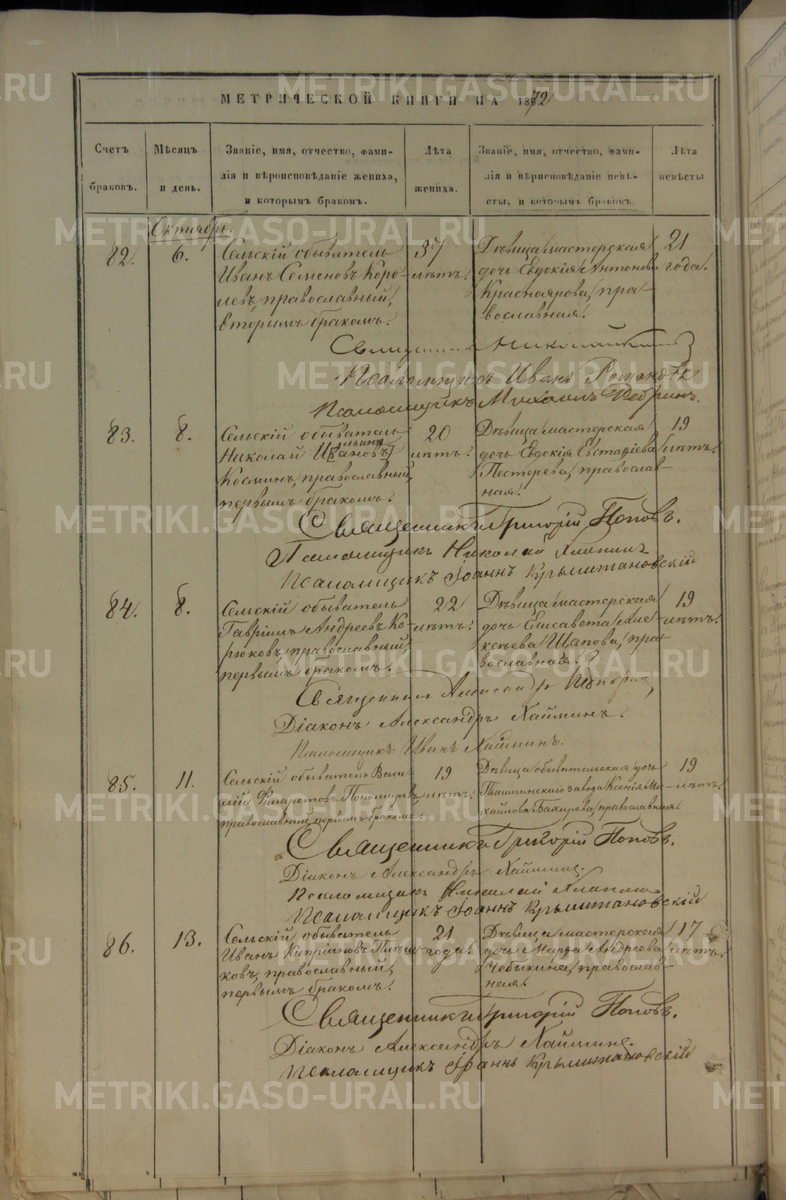 МЕТРИЧЕСКОЙ КНИГИ НА 1872
Счетъ браковъ.
Мѣсяцъ и день.
Званіе, имя, отчество, фами-
лія и вѣроисповѣданіе жениха,
и которымъ бракомъ.
Лѣта жениха.
Званіе, имя, отчество, фами-
лія и вѣроисповѣданіе невѣ-
сты, и которымъ бракомъ.
Лѣта невѣсты
Октябрь.
82.
6.
Сельскій обыватель
Иванъ Семеновъ Коро-
левъ, православный,
вторымъ бракомъ.
37
лѣтъ.
Дѣвица мастерская
дочь Евдокія Антонова
Красноярова, пра-
вославная.
21
года.
Священникъ
Псаломщикъ Иванъ
Псаломщикъ Михаилъ
83.
8.
Сельскій обыватель
Николай Ивановъ
Косминъ, православный,
первымъ бракомъ.
20
лѣтъ.
Дѣвица мастерская
дочь Евдокія Евстафіева
Пестерева, православ-
ная.
19
лѣтъ.
Священникъ Григорій Поповъ.
Псаломщикъ Николай
Псаломщикъ Іоаннъ Крыжановскій
84.
8.
Сельскій обыватель
Гавріилъ Андреевъ Ко-
рюковъ, православный,
первымъ бракомъ.
22
лѣтъ.
Дѣвица мастерская
дочь Елисавета Але-
ксѣева Щапова, пра-
вославная.
19
лѣтъ.
Священникъ Александръ
Діаконъ Александръ Хайминъ.
Псаломщикъ Иванъ Хайминъ.
85.
11.
Сельскій обыватель Васи-
лій Филаретовъ Пономаревъ,
православный, первымъ бракомъ.
19
лѣтъ.
Дѣвица обывательская дочь
Пышминскаго завода Ксенія Ми-
хайлова Вахирева, православная.
19
лѣтъ.
Священникъ Григорій Поповъ.
Діаконъ Александръ Хайминъ.
Псаломщикъ Николай
Псаломщикъ Іоаннъ Крыжановскій
86.
13.
Сельскій обыватель
Иванъ Кипріановъ
ковъ, православный,
первымъ бракомъ.
21
года.
Дѣвица мастерская
дочь Марѳа Андреева
Чебыкина, православ-
ная.
17
лѣтъ.
Священникъ Григорій Поповъ.
Діаконъ Александръ Хайминъ.
Псаломщикъ Іоаннъ Крыжановскій
METRIKI.GASO-URAL.RU